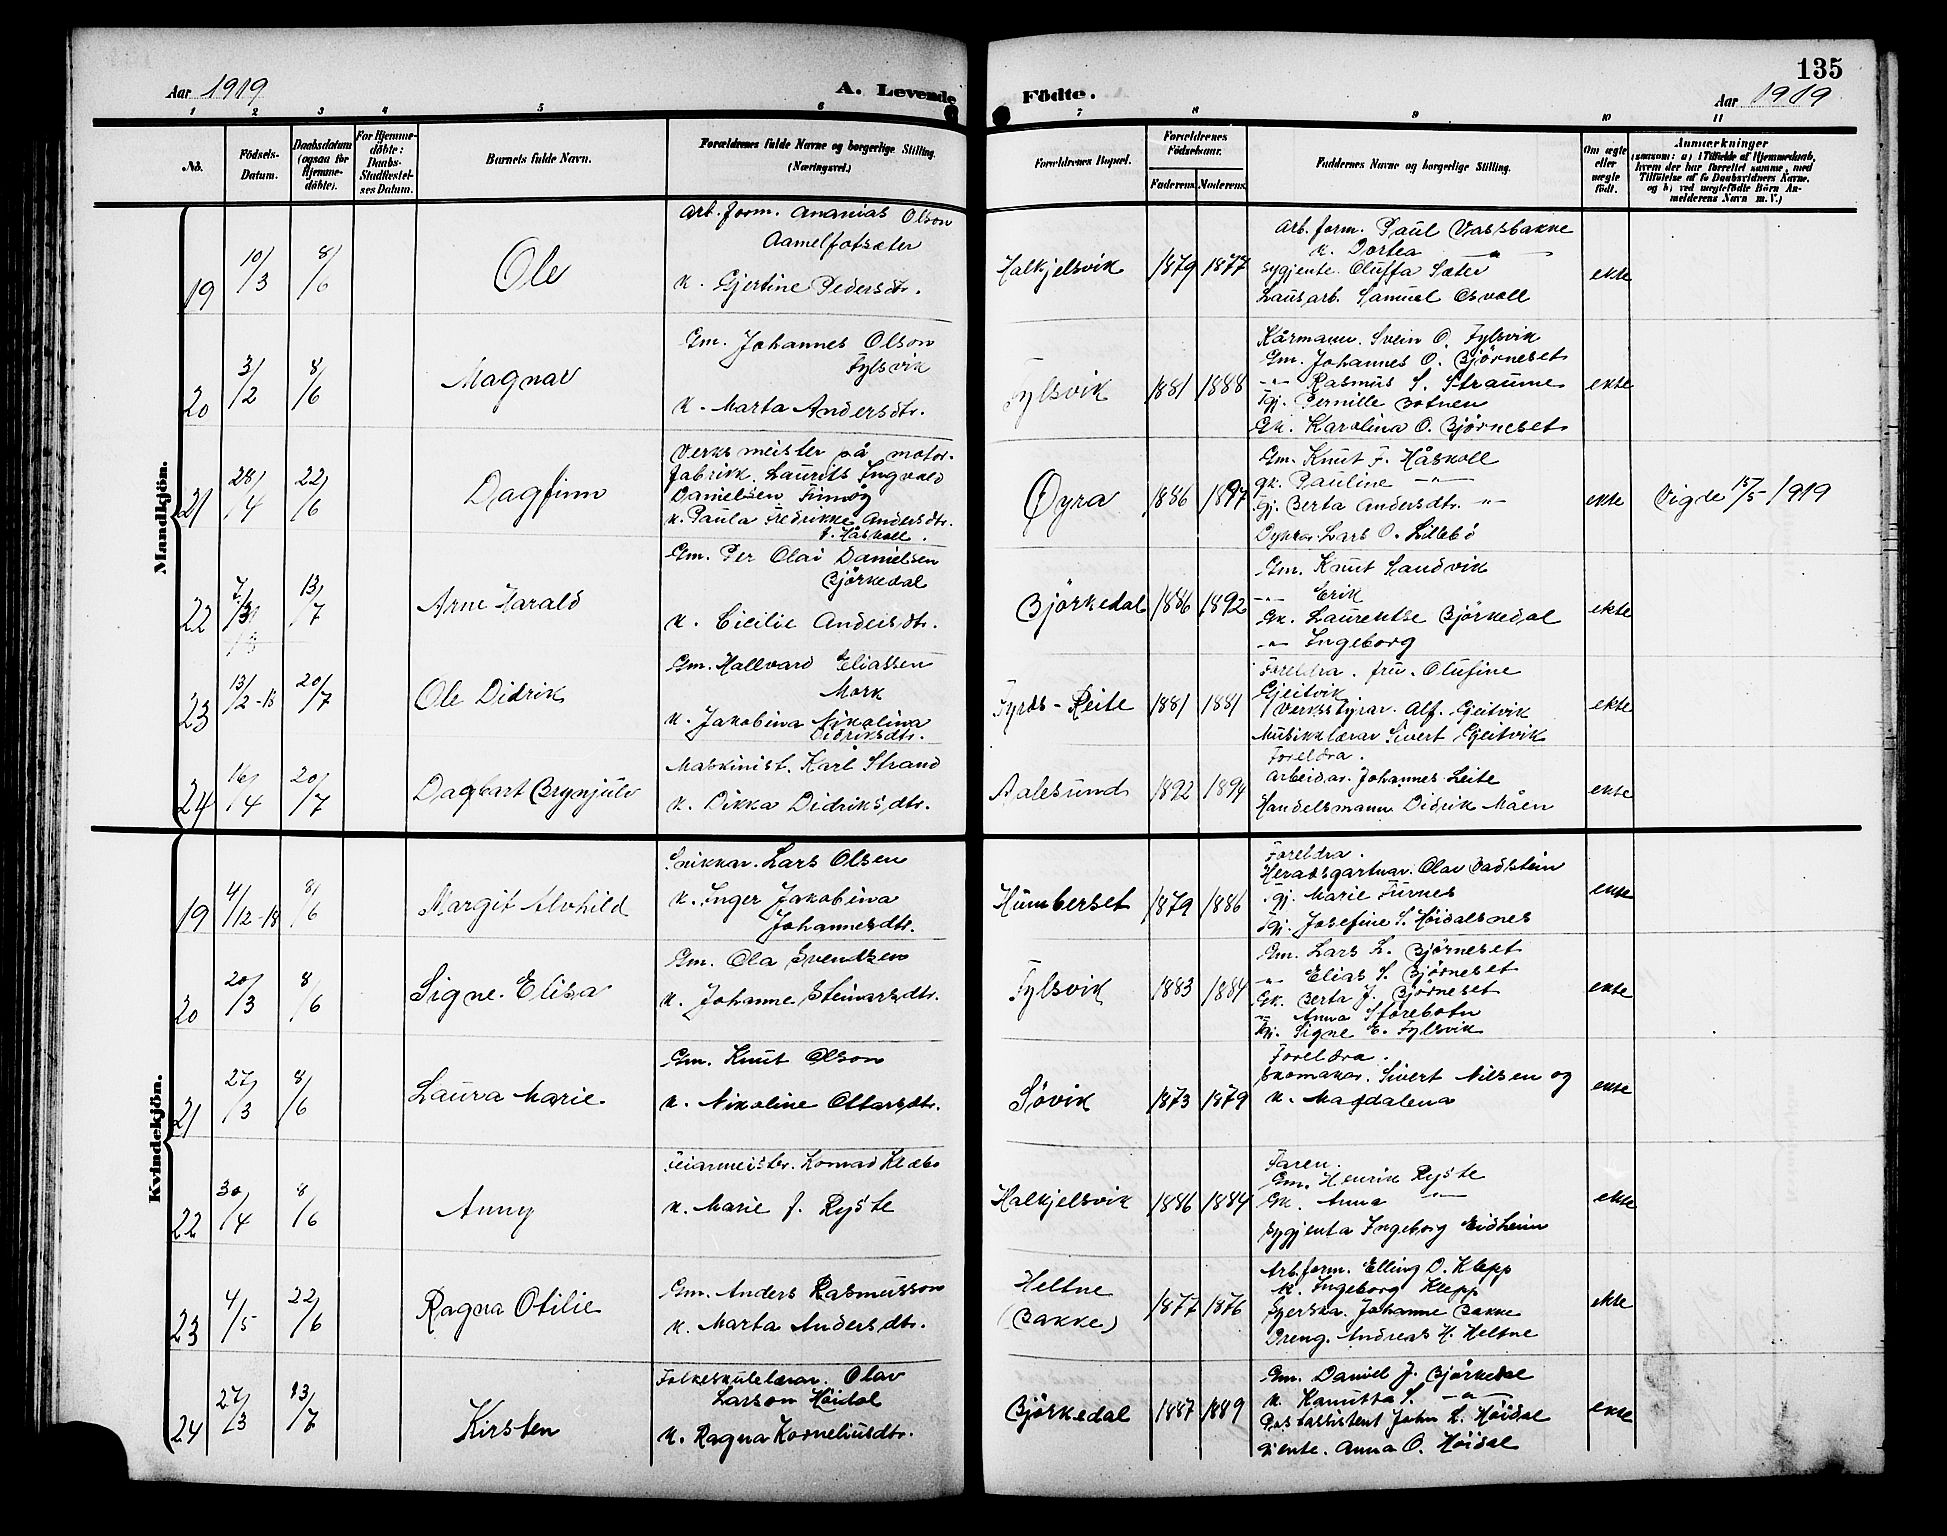 135
Aar 1919
A. Levende Födte.
Aar 1919
1 2 3 4 5 6 7 8 9 10 11
No.
Födsels-Datum.
Daabsdatum (ogsaa for Hjemme-döbte).
For Hjemme-döbte: Daabs-Stadfæstel-ses Datum.
Barnets fulde Navn.
Forældrenes fulde Navne og borgerlige Stilling. (Næringsvei.)
Forældrenes Bopæl.
Forældrenes Födselsaar.
Faderens. Moderens.
Faddernes Navne og borgerlige Stilling.
Om ægte eller uægte födt.
Anmærkninger
(saasom: a) i Tilfælde af Hjemmedaab, hvem der har forrettet samme, med Tilföielse af to Daabsvidners Navne, og b) ved uægtefödte Börn An-melderens Navn m. V.)
Mandkjön.
19 10/3 8/6 Ole
Arb. form. Ananias Olson
Aamelfotsæter
K. Gjertine Pedersdtr.
Halkjelsvik 1879 1877
Arb. form. Paul Vassbakke
K. Dortea — " —
Sygjente. Oluffa Sæter
Lausarb. Samuel Osvoll
ekte
20 3/2 8/6 Magnar
Gm. Johannes Olson
Fylsvik
K. Marta Andersdtr.
Fylsvik 1881 1888
Kårmann. Svein O. Fylsvik
Gm. Johannes O. Björneset
-"- Rasmus S. Straume
Tgj. Pernille Botnen
Gk. Karolina O. Björneset
ekte
21 28/4 22/6 Dagfinn
Verksmeister på motor-
fabrikk. Laurits Ingvald
Danielsen Furnöy
K. Paula Fredrikke Andersdtr.
f. Håskoll.
Öyra 1886 1897
Gm. Knut F. Håskoll
gk. Pauline — " —
Tgj. Berta Andersdtr. — " —
Lars O. Lillebö
ekte
Vigde 15/5 - 1919
22 7/3 13/7 Arne Harald
Gm. Per Olai Danielsen
Björkedal
K. Cicilie Andersdtr.
Björkedal 1886 1892
Gm. Knut Sandvik
-"- Erik
Gk. Laurentse Björkedal
-"- Ingeborg
ekte
23 13/2-18 20/7 Ole Didrik
Gm. Hallvard Eliassen
Mork
K. Jakobina Nikolina
Didriksdtr.
Fyrds-Reite 1881 1881
Foreldra. fru. Olufine
Gjeitvik
Verksstyrar. Alf. Gjeitvik
Musikklærar Sivert Gjeitvik
ekte
24 16/4 20/7 Dagbart Brynjulv
Maskinist. Karl Strand
K. Dikka Didriksdtr.
Aalesund 1892 1894
Foreldra.
Arbeidar. Johannes Leite
Handelsmann Didrik Måen
ekte
Kvindekjön.
19 4/12-18 8/6 Margit Alvhild
Snikkar. Lars Olsen
K. Inger Jakobina
Johannesdtr.
Humberset 1879 1886
Foreldra.
Heradsgartnar. Olav Vadstein
Tgj. Marie Furnes
Tgj. Josefine S. Höidalsnes
ekte
20 20/3 8/6 Signe. Elisa
Gm. Ola Svendsen
K. Johanne Steinarsdtr.
Fylsvik 1883 1884
Gm. Lars L. Björneset
-"- Elias S. Björneset
Gk. Berta J. Björneset
-"- Anna Störebotn
Tgj. Signe E. Fylsvik
ekte
21 27/3 8/6 Laura Marie
Gm. Knut Olson
K. Nikoline Ottarsdtr.
Sövik 1873 1879
Foreldra.
Skomakar. Sivert Nilsen og
K. Magdalena
ekte
22 30/4 8/6 Anny
Konrad Klæbo
K. Marie J. Ryste
Halkjelsvik 1886 1884
Faren.
Gm. Henrik Ryste
Gk. Anna — " —
Sygjenta Ingeborg Eidheim
ekte
23 4/5 22/6 Ragna Otilie
Gm. Anders Rasmusson
K. Marta Andersdtr.
Heltne
(Bakke) 1877 1876
Arb. form. Elling O. Klepp
K. Ingeborg Klepp
Syerska. Johanne Bakke
Dreng. Andreas H. Heltne
ekte
24 27/3 13/7 Kirsten
Folkeskulelærar. Olav
Larson Höidal
K. Ragna Korneliusdtr.
Björkedal 1887 1889
Gm. Daniel J. Björkedal
K. Hanutta S. — " —
Postassistent John K. Höidal
gjente. Anna O. Höidal
ekte